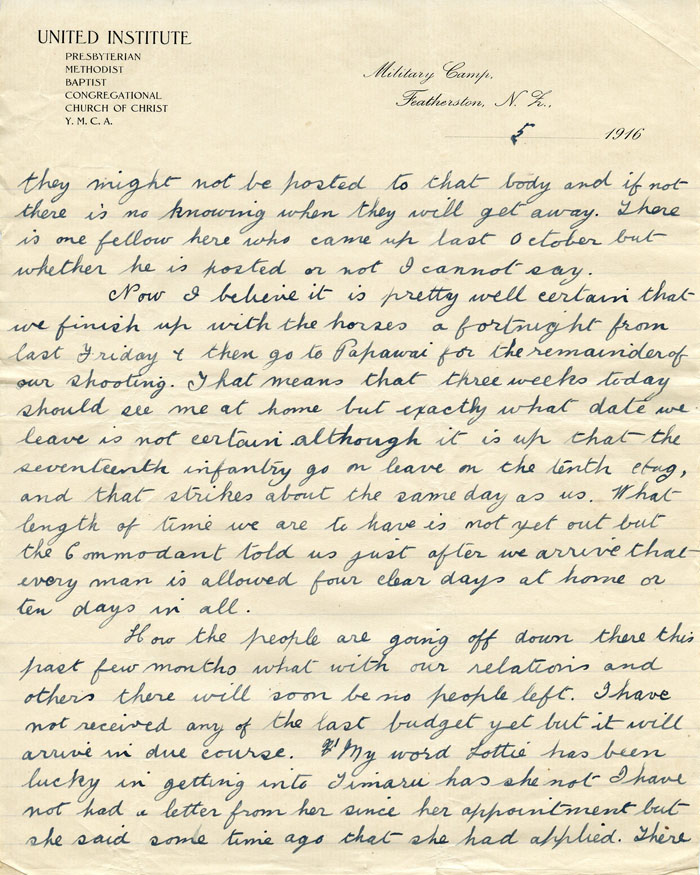 UNITED INSTITUTE
PRESBYTERIAN
METHODIST
BAPTIST
CONGREGATIONAL
CHURCH OF CHRIST
Y. M. C. A.
Military Camp,
Featherston, N. Z.,
5 1916
they might not be posted to that body and if not
there is no knowing when they will get away. There
is one fellow here who came up last October but
whether he is posted or not I cannot say.
Now I believe it is pretty well certain that
we finish up with the horses a fortnight from
last Friday & then go to Papawai for the remainder of
our shooting. That means that three weeks today
should see me at home but exactly what date we
leave is not certain although it is up that the
seventeenth infantry go on leave on the tenth Aug,
and that strikes about the same day as us. What
length of time we are to have is not yet out but
the Commodant told us just after we arrive that
every man is allowed four clear days at home or
ten days in all.
How the people are going off down there this
past few months what with our relations and
others there will soon be no people left. I have
not received any of the last budget yet but it will
arrive in due course. My word Lottie has been
lucky in getting into Timaru has she not I have
not had a letter from her since her appointment but
she said some time ago that she had applied. There